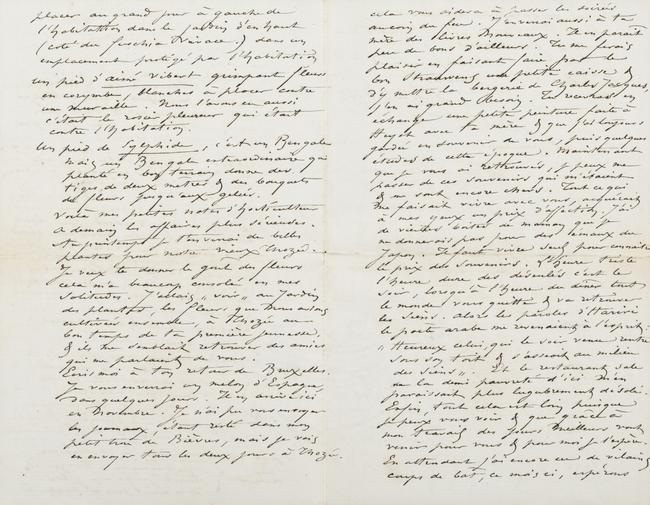 placer au grand jour à gauche de
l'habitation dans le jardin d'en haut
(coté du                ) dans un
emplacement protégé par l'habitation
un pied d'aimé vibert grimpant fleurs
en corymbe, blanches à placer contre
une muraille. Nous l'avons eu aussi
c'était le rosier pleureur qui était
contre l'habitation.
Un pied de Sylphide, c'est un Bengale
mais un Bengale extraordinaire qui
planté en bon terrain donne des
tiges de deux metres & des bouquets
de fleurs jusqu'aux gelées.
Voilà mes petites notes d'horticulteur
à demain les affaires plus sérieuses.
Au printemps je t'enverrai de belles
plantes pour notre vieux Thozée.
Je veux te donner le goût des fleurs
cela m'a beaucoup consolé en mes
solitudes. J'allais "voir" au Jardin
des plantes, les fleurs que nous avions
cultivées ensemble, à Thozée au
bon temps de ta première jeunesse,
& il me semblait retrouver des amies
qui me parlaient de vous.
Ecris moi à ton retour de Bruxelles.
Je vous enverrai un melon d'Espagne,
dans quelques jours. Il en arrive ici
en Novembre. Je n'ai pu vous envoyer
les journaux, étant resté dans mon
petit trou de Bièvres, mais je vais
en envoyer tous les deux jours à Thozée.
cela vous aidera à passer les soirées
au coin du feu. J'enverrai aussi à ta
mère des livres nouveaux. Il en parait
peu de bons d'ailleurs. Tu me ferais
plaisir en faisant faire par le
bon              une petite caisse &
d'y mettre la bergerie de Charles Jacques,
j'en ai grand besoin. Tu recevras en
échange une petite peinture faite à
Heyst avec ta mère & que j'ai toujours
gardée en souvenir de vous, puis quelques
études de cette époque. Maintenant
que je vous ai retrouvés, je peux me
passer de ces souvenirs qui m'étaient
& me sont encore chers. Tout ce qui
me faisait vivre avec vous, acquérait
à mes yeux un prix d'affection. J'ai
de vieilles boites de maman que je
ne donnerais pas pour des émaux du
Japon. Il faut vivre seul pour connaitre
le prix des souvenirs. L'heure triste
l'heure dure des            c'est le
soir, lorsqu'à l'heure du diner tout
le monde vous quitte & va retrouver
les siens. Alors les paroles d'Hariri
le poète arabe me revenaient à l'esprit:
"Heureux celui, qui le soir venu rentre
sous son toit & s'asseoit au milieu
des siens". Et le restaurant sale
de la demi pauvreté d'ici m'en
paraissait plus lugubrement désolé.
Enfin, tout cela est loin puisque
je peux vous voir & que grâce à
mon travail des jours meilleurs vont
venir pour vous & pour moi je l'espère.
En attendant j'ai encore eu de vilains
coups de bas, ce mois ci, espérons